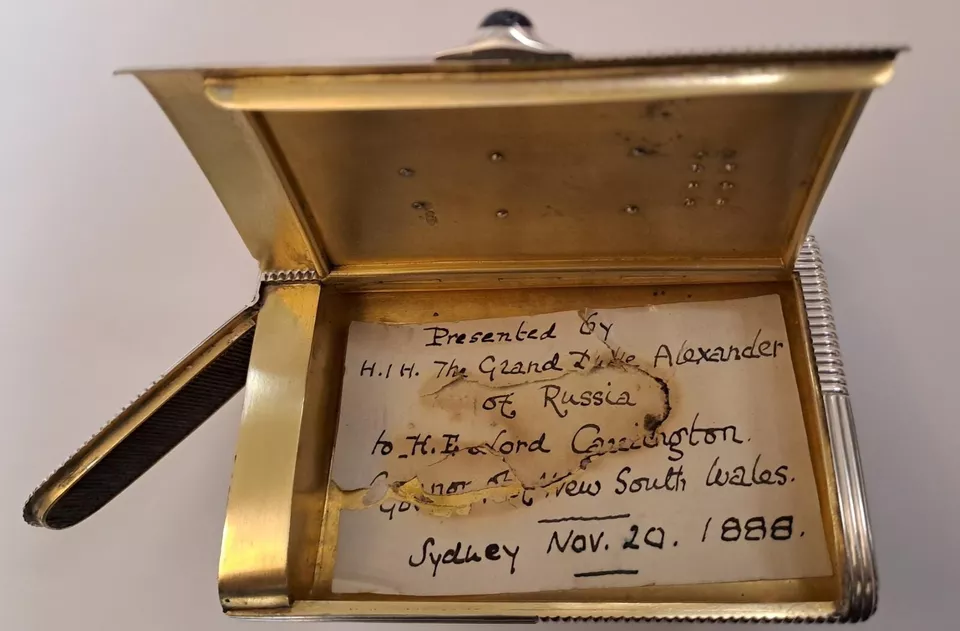 Presented by
H.I.H. The Grand Duke Alexander
of Russia
to H.E. Lord Carrington.
Governor of New South Wales.
Sydney Nov. 20. 1888.